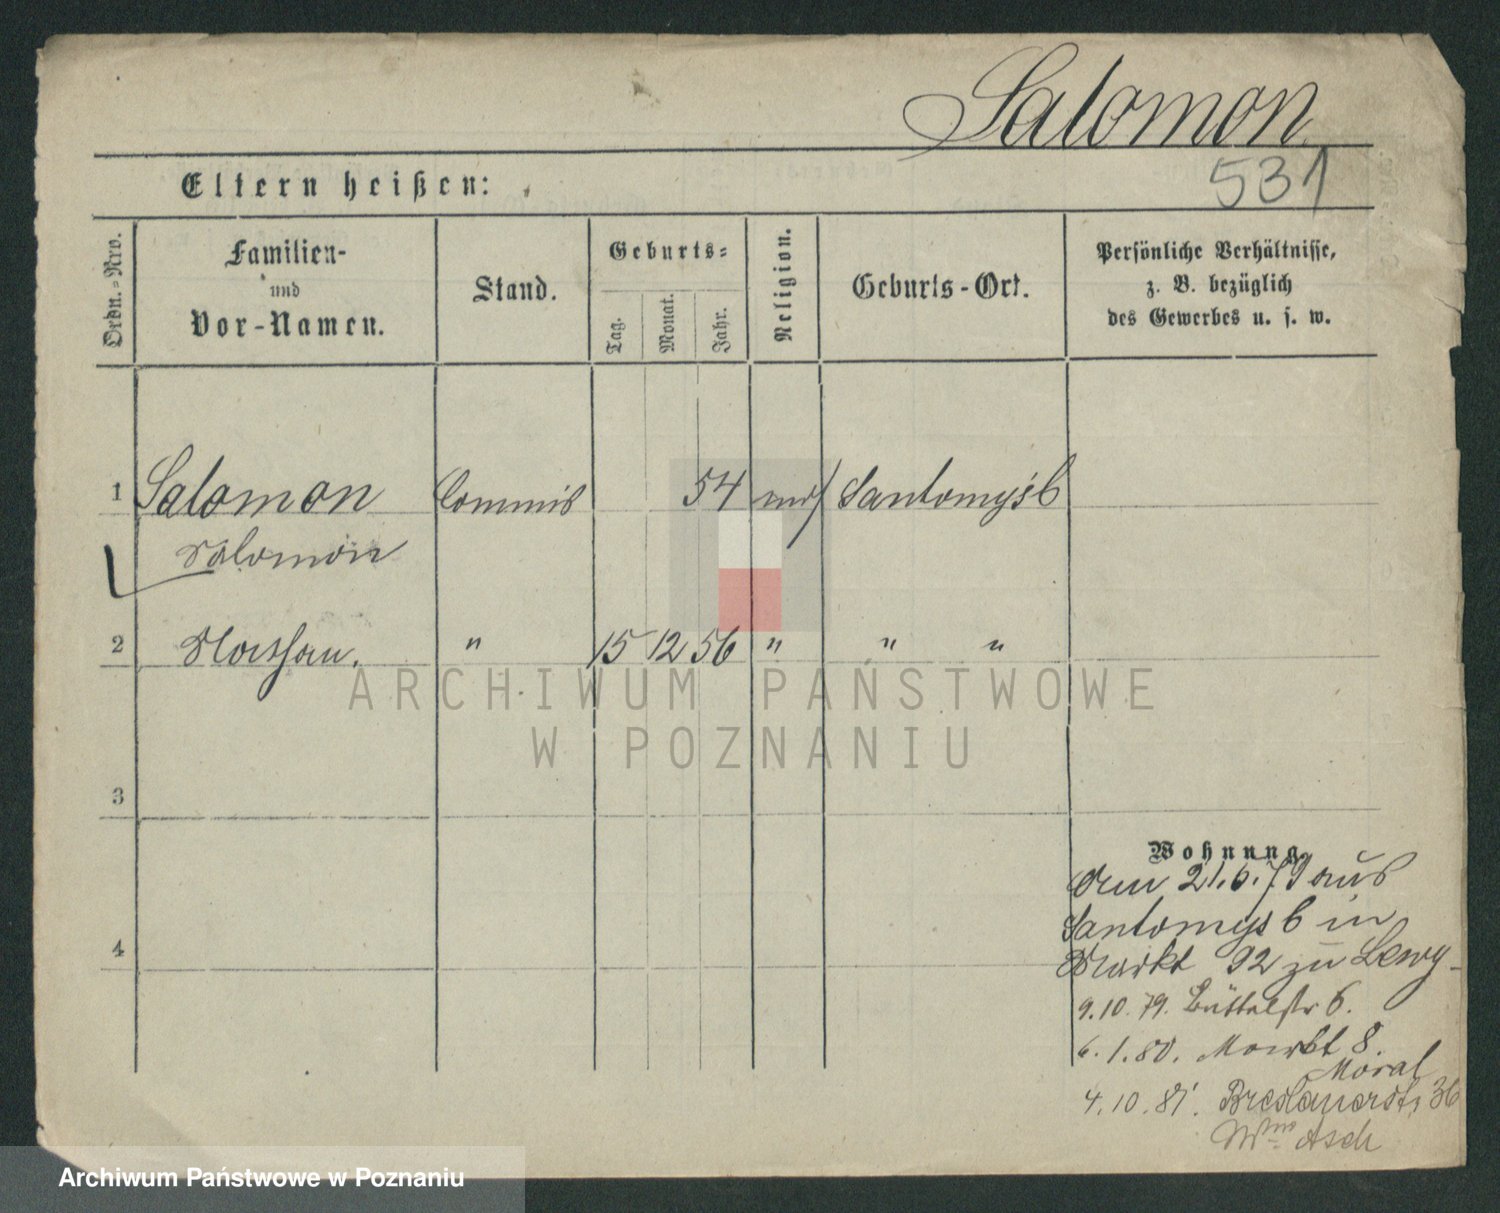 Salomon
531
Eltern heißen:
Ordn.-Nro.
Familien-
und
Vor-Namen.
Stand.
Geburts-
Tag.
Monat.
Jahr.
Religion.
Geburts-Ort.
Persönliche Verhältnisse,
z. B. bezüglich
des Gewerbes u. s. w.
1 Salomon Commis 54 Santomysl
Salomon
2 Nathan. " 15 12 56 " " "
ARCHIWUM PAŃSTWOWE
W POZNANIU
3
Wohnung.
am 21.6.79 aus
Santomysl in
4
Markt 92 zu Lewy-
9.10.79. 6.
6.1.80. Markt 8.
Moral
4.10.81. Breslauerstr 36
Wwe Asch
Archiwum Państwowe w Poznaniu